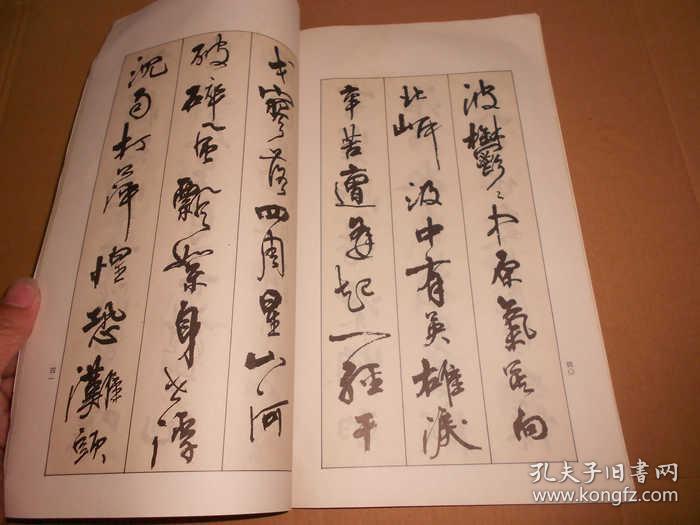 波鬱〻中原氣莫向
北岸汲中有英雄淚
辛苦遭逢起一經干
四〇
戈寥落四周星山河
破碎風飄絮身世浮
沉雨打萍惶恐灘頭
四一
孔夫子旧书网
www.kongfz.com